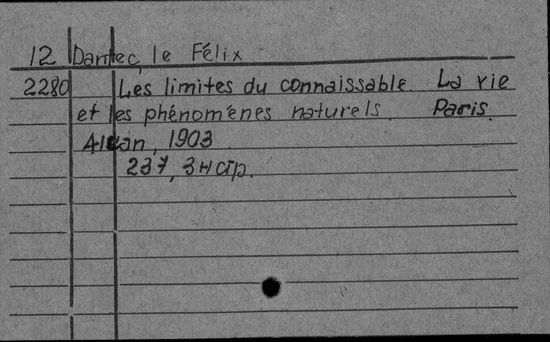 12 Dantec, le Félix
2280 Les limites du connaissable. La vie
et les phénomènes naturels. Paris.
Alcan, 1903
237, 3н стр.